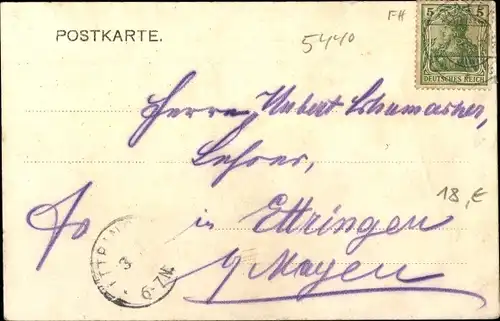 FH
5 5
POSTKARTE.
5440
DEUTSCHES REICH
Herrn Hubert Schumacher,
Lehrer,
18,€
in Ettringen
b/ Mayen
ETTRIN
3
6-7N